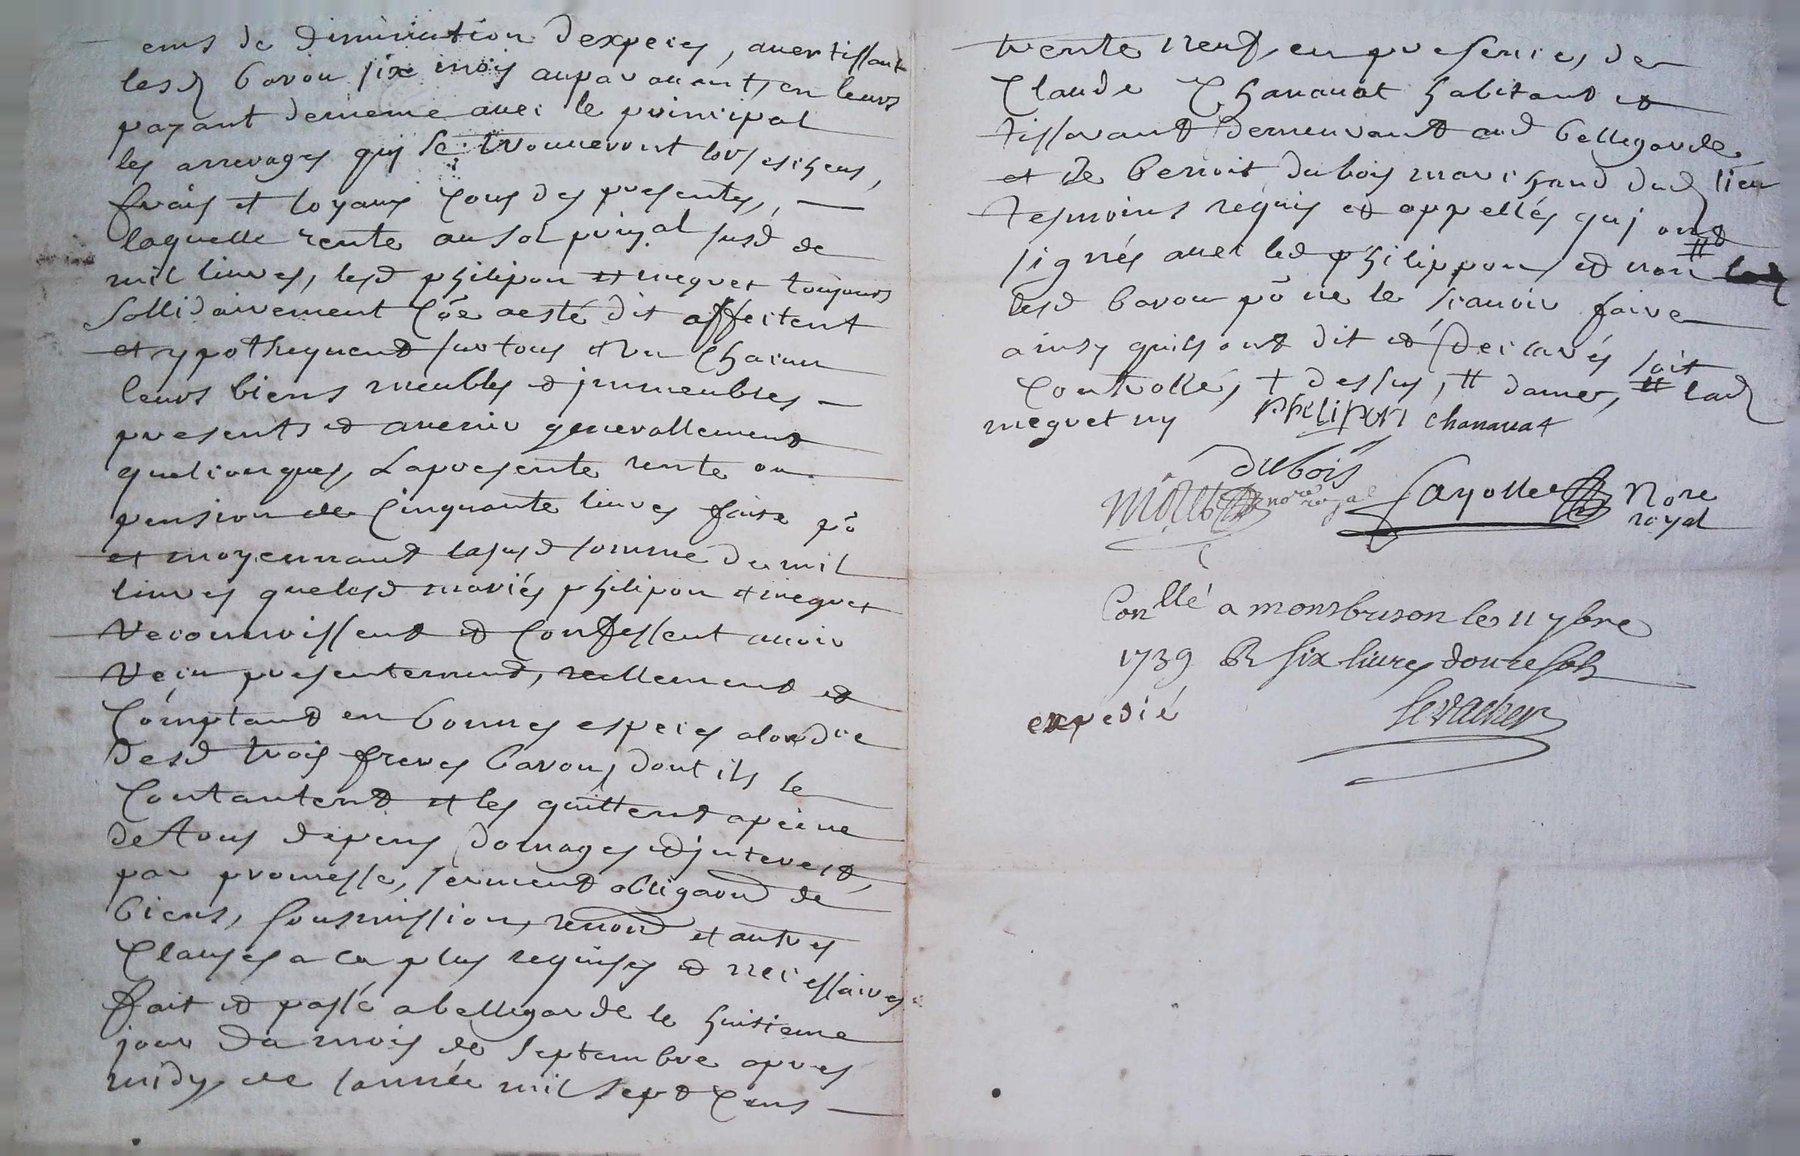 ens de diminution d'expeces, avertissant
lesd bavou six mois auparavant, en leurs
payant de meme avec le principal
les arrerages quj se trouveront lors escheus,
frais et loyaux cous des presentes, —
laquelle rente au sol prin.al susd de
mil livres, lesd philipon et meguet toujours
sollidairement coe a esté dit affectent
et ypothequent sur tous et un chacun
leurs biens meubles et jmmeubles —
presents et avenir generallement
quelconques, La presente rente ou
pension de cinquante livres faite po
et moyennant la susd somme de mil
livres que lesd mariés philipon et meguet
reconnoissent et confessent avoir
reçu presentement, reellement et
comptant en bonnes espeices
desd trois freres bavou, dont ils se
contantent et les quittent a peine
de tous depens domages et jnterest,
par promesse, serment obligaon de
biens, sousmission, renon et autres
clauses a ce plus requises et necessaires
fait et passé a bellegarde le huitieme
jour du mois de septembre apres
midy de l'année mil sept cens —
trente neuf, en presence, de
Claude Chanauat habitant et
tisserant demeurant aud bellegarde
et de benoit dubois marchand dud lieu
tesmoins requis et appellés quj ont
signés avec led philippon, et non #
lesd bavou po ne le scavoir faire
ainsy quils ont dit et declarés soit
controllé, + dessus, # damer, # lad
meguet ny philipon chanauat
dubois
nore royal fayolle Nore
royal
Conllé a montbrison le 11 7bre
1739 R six livres douze sols
expedié levacher